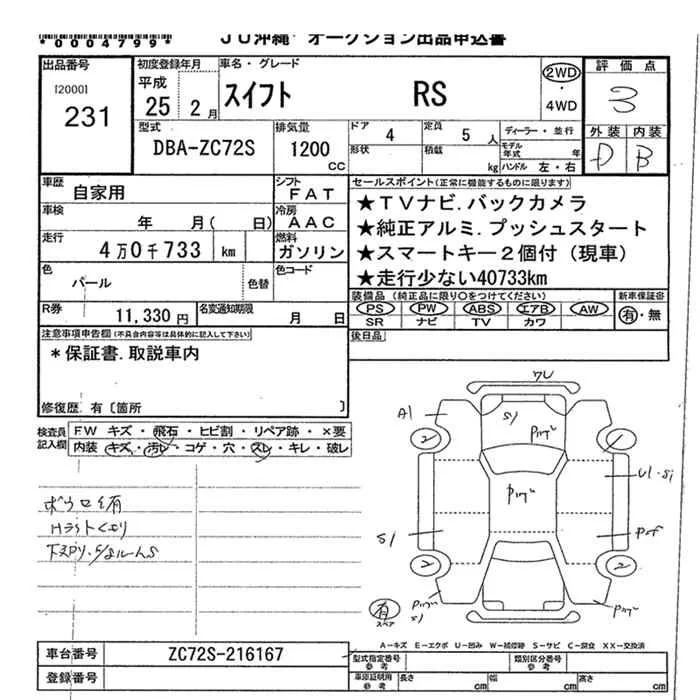 *0004799*
JU沖縄 オークション出品申込書
出品番号
[2000]
231
初度登録年月
平成
25 2月
車名・グレード
スイフト RS
2WD
・
4WD
評価点
3
外装 内装
D B
型式
DBA-ZC72S
排気量
1200
CC
ドア 4
定員 5 人
形状
積載 kg
ディーラー・並行
モデル年式 年
ハンドル 左・右
車歴
自家用
シフト
FAT
車検
年 月( 日)
冷房
AAC
走行
4万0千733 km
燃料
ガソリン
色
パール
色替
色コード
R券
11,330円
名変通知期限
月 日
セールスポイント(正常に機能するものに限ります)
★TVナビ.バックカメラ
★純正アルミ.プッシュスタート
★スマートキー2個付(現車)
★走行少ない40733km
装備品(純正品に限り○をつけてください)
PS PW ABS エアB AW
SR ナビ TV カワ
新車保証書
有・無
後日品
注意事項申告欄(不具合内容等は具体的に記入して下さい)
*保証書.取説車内
修復歴.有〔箇所 〕
検査員記入欄
FW キズ・飛石・ヒビ割・リペア跡・×要
内装 キズ・汚レ・コゲ・穴・スレ・キレ・破レ
Hライトくもり
A1
S1
2
2
U1・S1
S1
2
2
S1
有
スペア
A－キズ E－エクボ U－凹み W－補修跡 S－サビ C－腐食 XX－交換済
車台番号
ZC72S-216167
登録番号
型式指定番号
参考
類別区分番号
参考
車庫証明用
参考
長さ cm
幅 cm
高さ cm